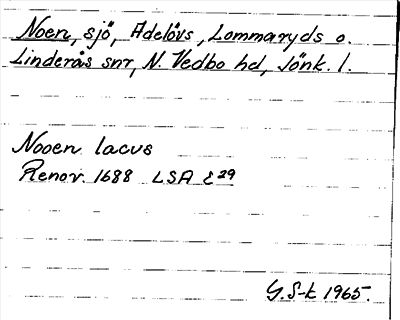 Noen, sjö, Adelövs, Lommaryds o.
Linderås snr, N. Vedbo hd, Jönk. l.
Nooen lacus
Renov. 1688 LSA E 29
G. S-k 1965.